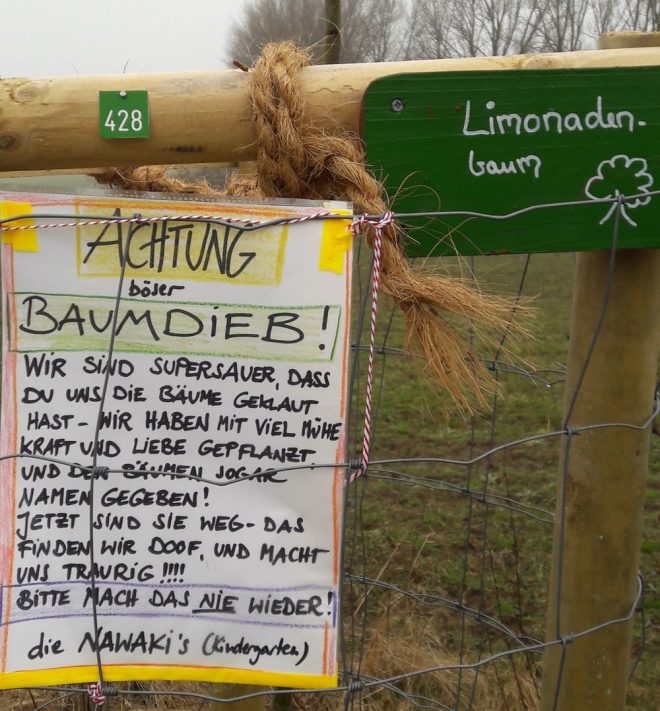 428
Limonaden-
baum
ACHTUNG
böser
BAUMDIEB!
WIR SIND SUPERSAUER, DASS
DU UNS DIE BÄUME GEKLAUT
HAST - WIR HABEN MIT VIEL MÜHE
KRAFT UND LIEBE GEPFLANZT
UND DEN BÄUMEN SOGAR
NAMEN GEGEBEN!
JETZT SIND SIE WEG - DAS
FINDEN WIR DOOF, UND MACHT
UNS TRAURIG!!!!
BITTE MACH DAS NIE WIEDER!
die NAWAKi's (Kindergarten)